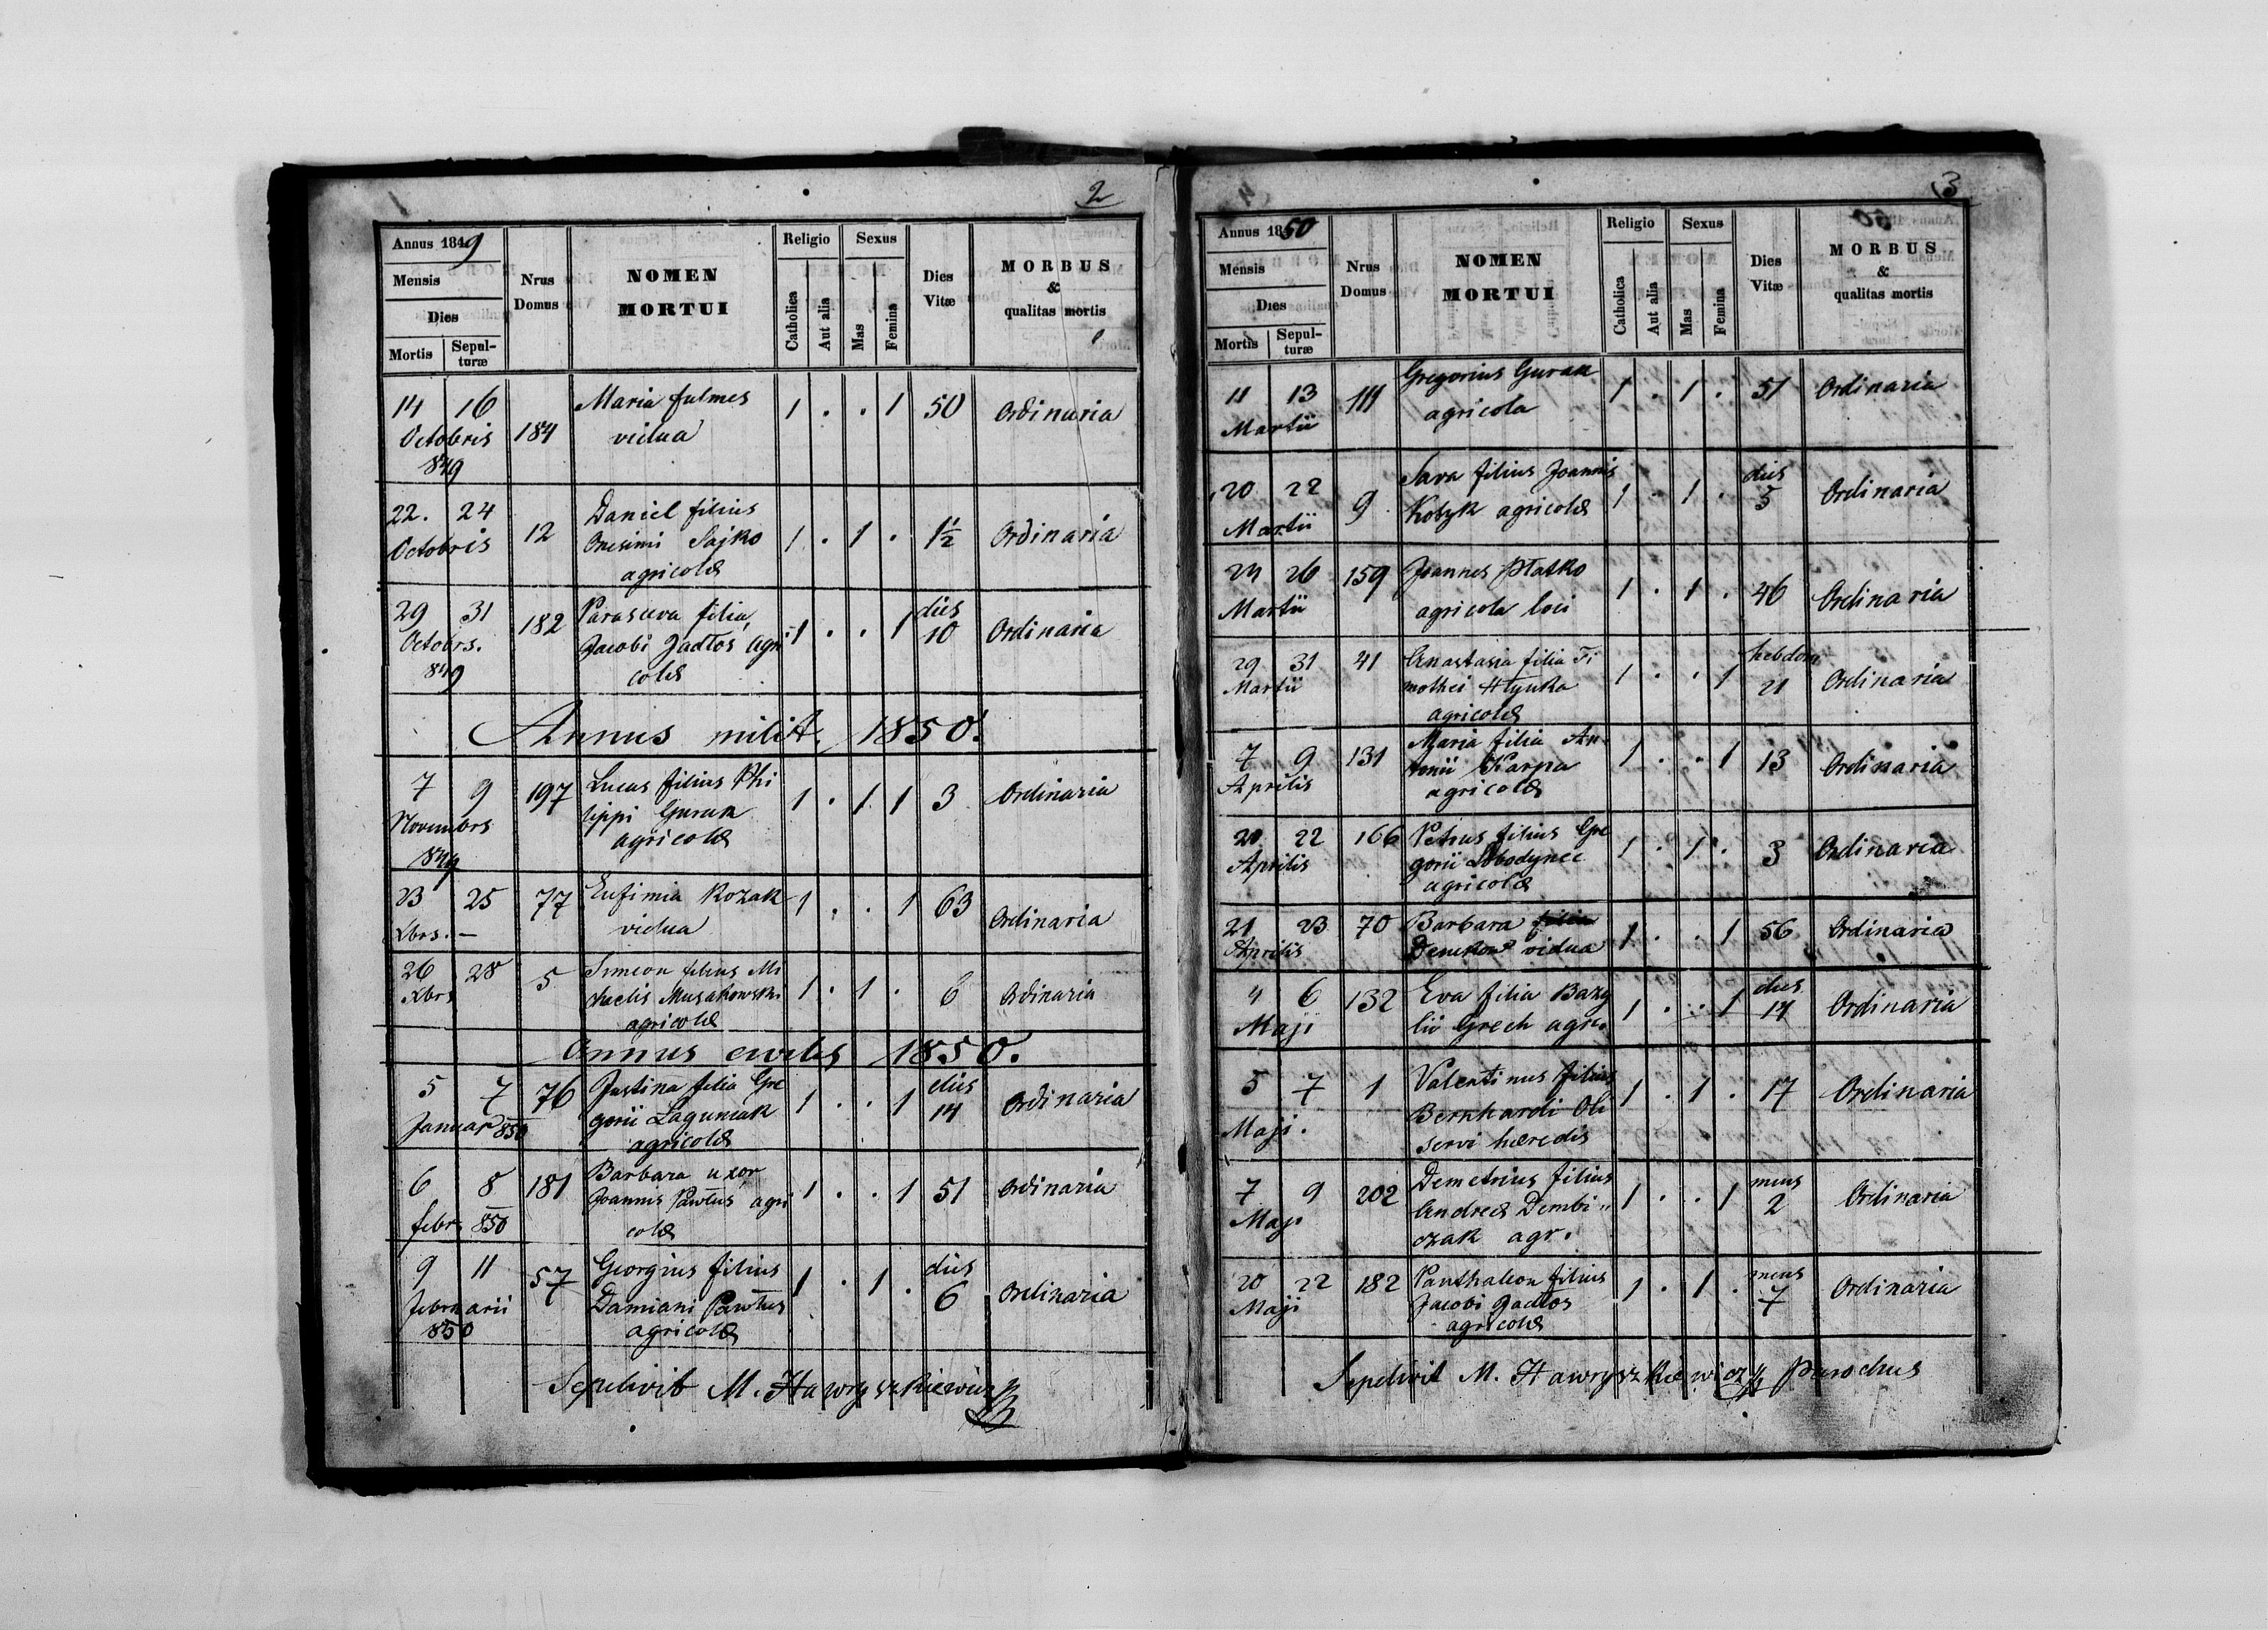 2
Annus 1849
Mensis
Dies
Mortis
Sepul-
turæ
Nrus
Domus
NOMEN
MORTUI
Religio
Catholica
Aut alia
Sexus
Mas
Femina
Dies
Vitæ
MORBUS
&
qualitas mortis
14 16 Maria fulmes 1 . . 1 50 Ordinaria
Octobris 184 vidua
849
22. 24 Daniel filius
Octobris 12 Onesimi Sajko 1 . 1 . 1½ Ordinaria
agricolæ
29 31 182 Parasceva filia dies
Octobrs. Jacobi Jadłos agri 1 . . 1 10 Ordinaria
849 colæ
Annus milit. 1850.
7 9 197 Lucas filius Phi 1 . 1 1 3 Ordinaria
Novembrs lippi Guran
849 agricolæ
23 25 77 Eufimia Kozak 1 . . 1 63 Ordinaria
Xbrs. – vidua
26 28 5 Simeon filius Mi
Xbrs chaelis Musakowski 1 . 1 . 6 Ordinaria
agricolæ
Annus civilis 1850.
5 7 76 Justina filia Gre dies
Januar 850 gorii Laguniak 1 . . 1 14 Ordinaria
agricolæ
6 8 181 Barbara uxor
febr 850 Joannis Pawlus agri 1 . . 1 51 Ordinaria
colæ
9 11 57 Georgius filius dies
februarii Damiani Pawlus 1 . 1 . 6 Ordinaria
850 agricolæ
Sepelivit M. Hawryszkiewicz
3
Annus 1850
Mensis
Dies
Mortis
Sepul-
turæ
Nrus
Domus
NOMEN
MORTUI
Religio
Catholica
Aut alia
Sexus
Mas
Femina
Dies
Vitæ
MORBUS
&
qualitas mortis
11 13 111 Gregorius Guran 1 . 1 . 51 Ordinaria
Martii agricola
20 22 9 Sava filius Joannis dies
Martii Kobyk agricolæ 1 . 1 . 5 Ordinaria
24 26 159 Joannes Płatko 1 . 1 . 46 Ordinaria
Martii agricola loci
29 31 41 Anastasia filia Ti hebdom
Martii mothei Hlynka 1 . . 1 21 Ordinaria
agricolæ
7 9 131 Maria filia An- 1 . . 1 13 Ordinaria
Aprilis tonii Karpa
agricolæ
20 22 166 Petrus filius Gre 1 . 1 . 3 Ordinaria
Aprilis gorii Lobodynec
agricolæ
21 23 70 Barbara filia 1 . . 1 56 Ordinaria
Aprilis vidua
4 6 132 Eva filia Bazy dies
Maji lii Grech agric. 1 . . 1 14 Ordinaria
5 7 1 Valentinus filius 1 . 1 . 17 Ordinaria
Maji. Bernhardi Oli
servi hæredis
7 9 202 Demetrius filius mens
Maji Andreæ Dembi„ 1 . . 1 2 Ordinaria
czak agr.
20 22 182 Panthaleon filius mens
Maji Jacobi Jadłos 1 . 1 . 7 Ordinaria
agricolæ
Sepelivit M. Hawryszkiewicz Parochus